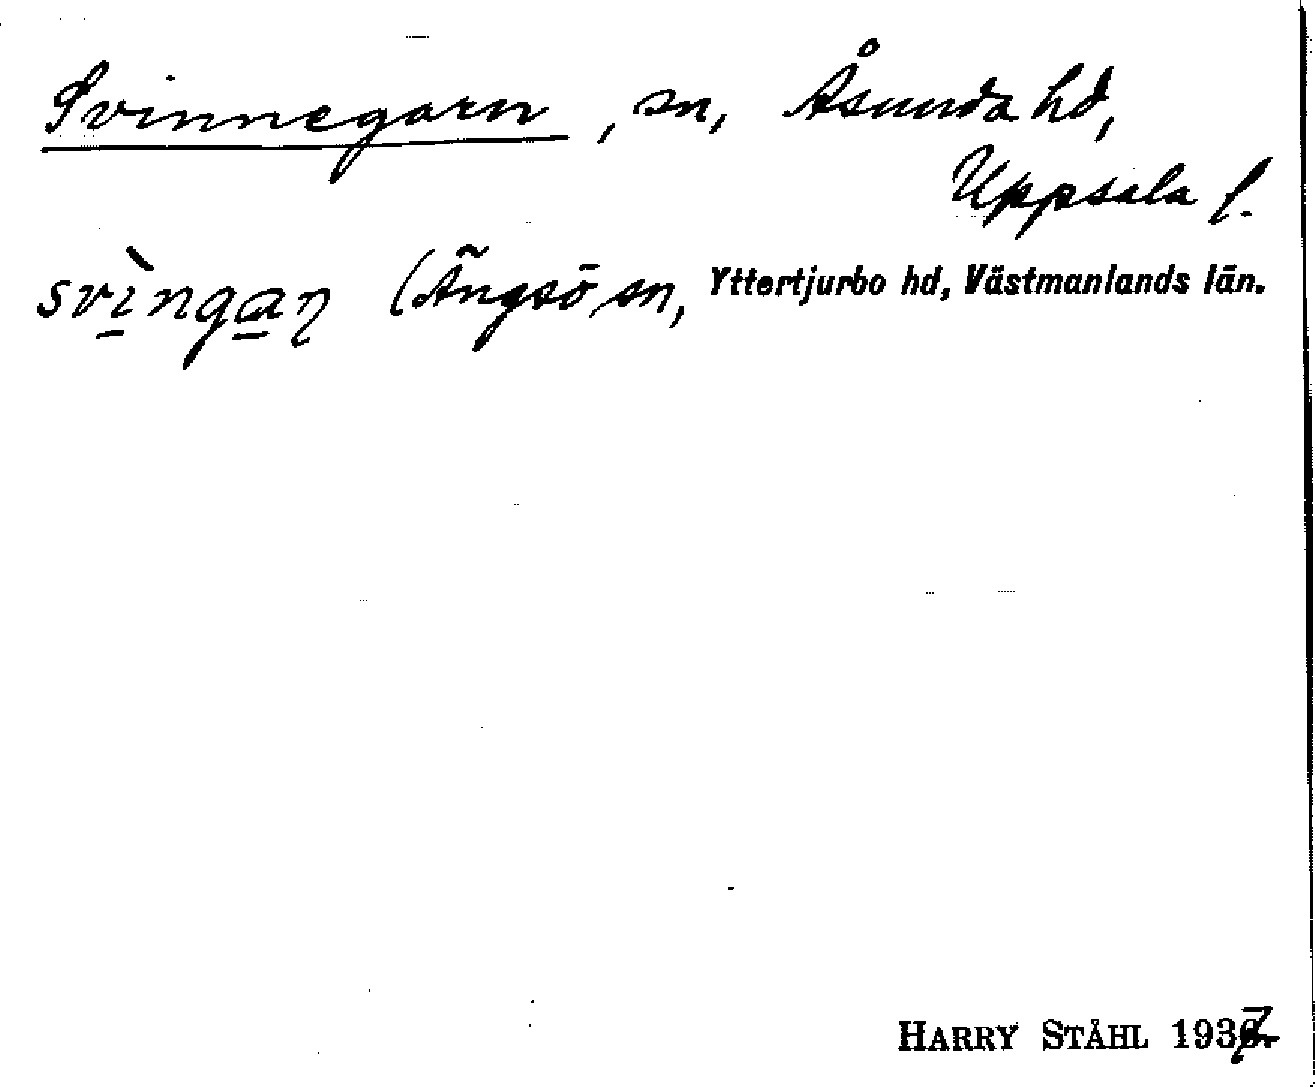 Svinnegarn, sn, Åsunda hd,
Uppsala l.
svìngaɳ (Ängsö sn, Yttertjurbo hd, Västmanlands län.
HARRY STÅHL 1937